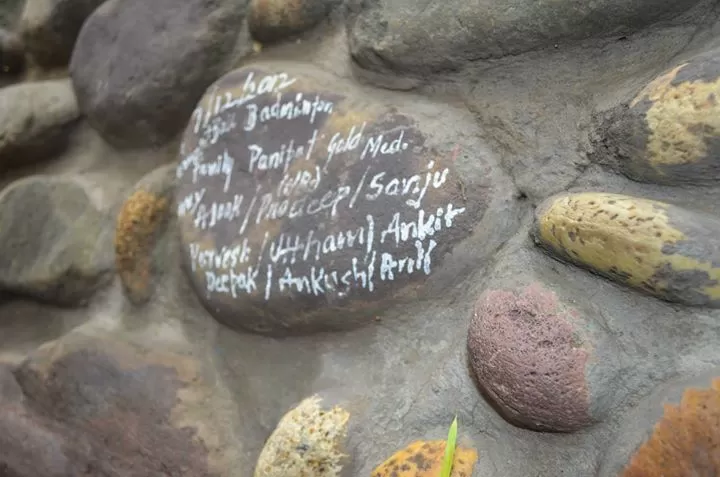 /12.2012
Ball Badminton
Family Panipat Gold Med.
Ashok / Pradeep / Sanju
Parvesh / Uttham / Ankit
Deepak / Ankush / Anil